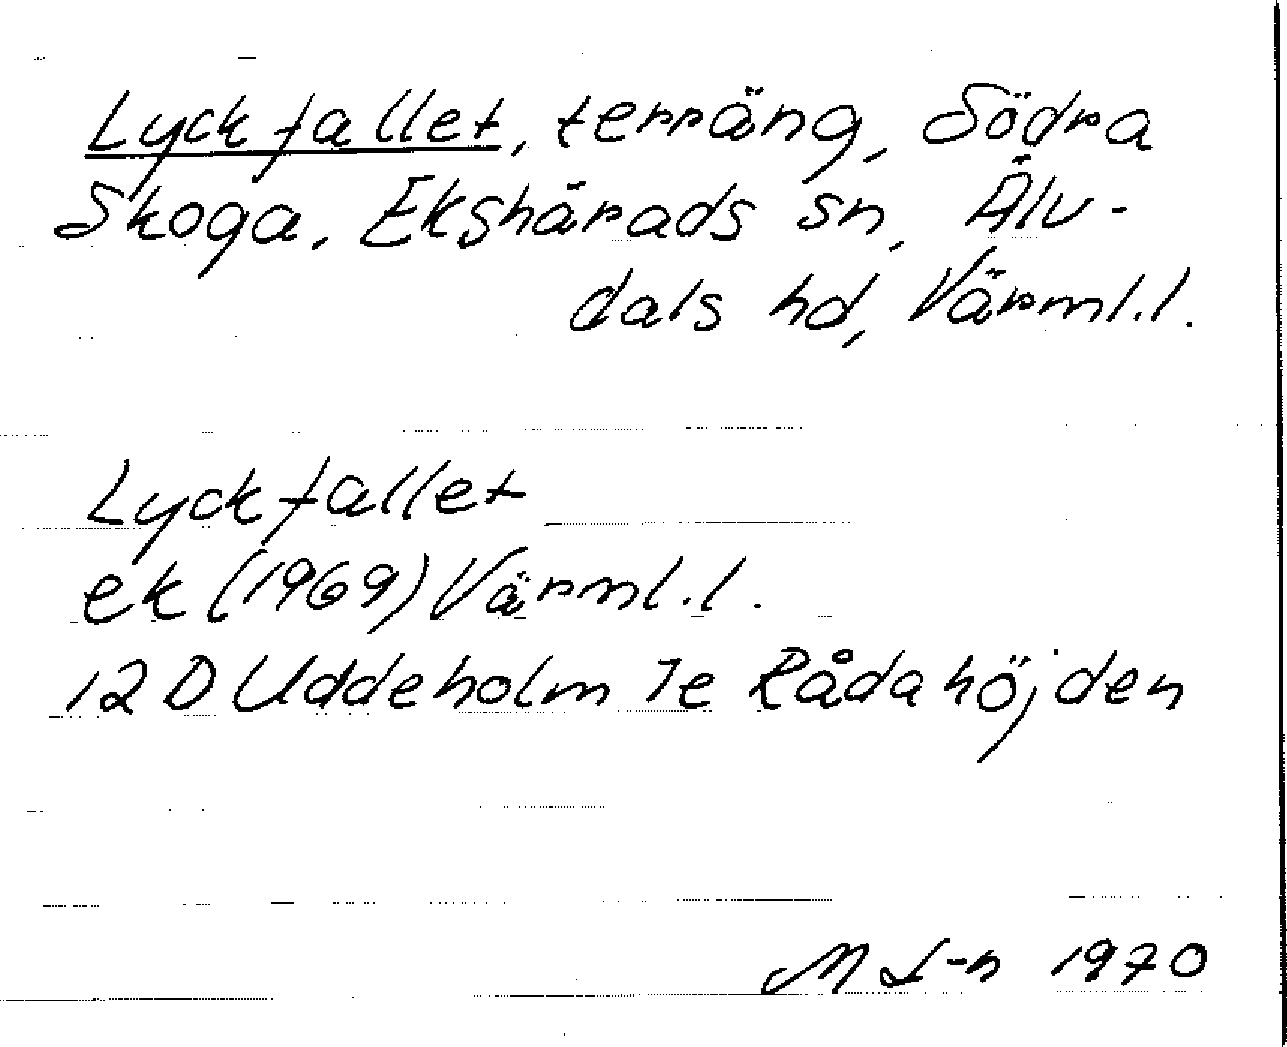 Lyckfallet, terräng, Södra
Skoga, Ekshärads sn, Älv-
dals hd, Värml.l.
Lyckfallet
ek (1969) Värml.l.
12 D Uddeholm 7e Rådahöjden
M L-n 1970